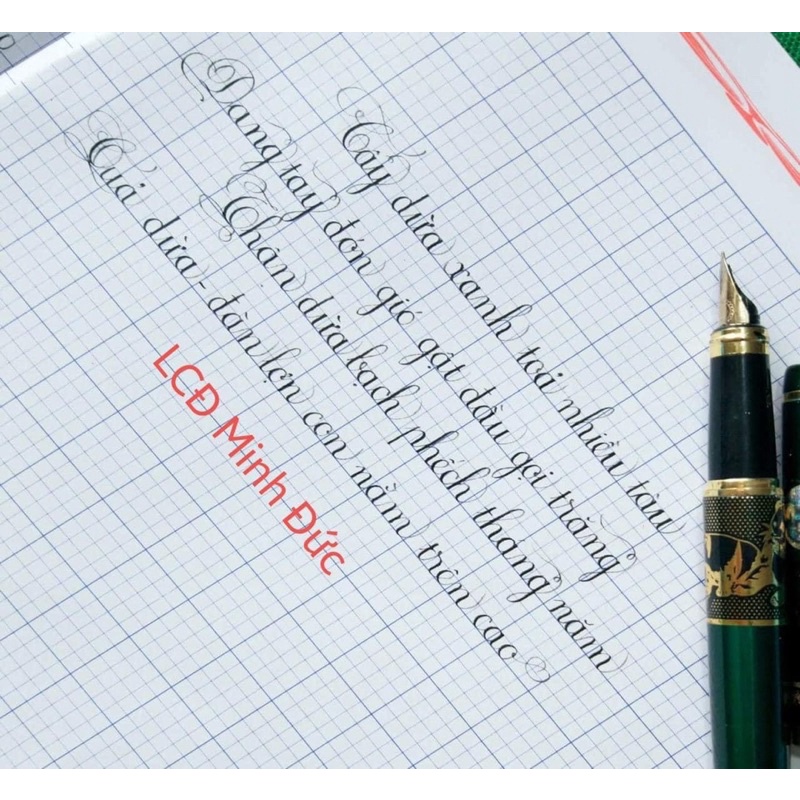 Cây dừa xanh toả nhiều tàu
Dang tay đón gió gật đầu gọi trăng
Thân dừa bạch phếch tháng năm
Quả dừa - đàn lợn con nằm trên cao
LCĐ Minh Đức